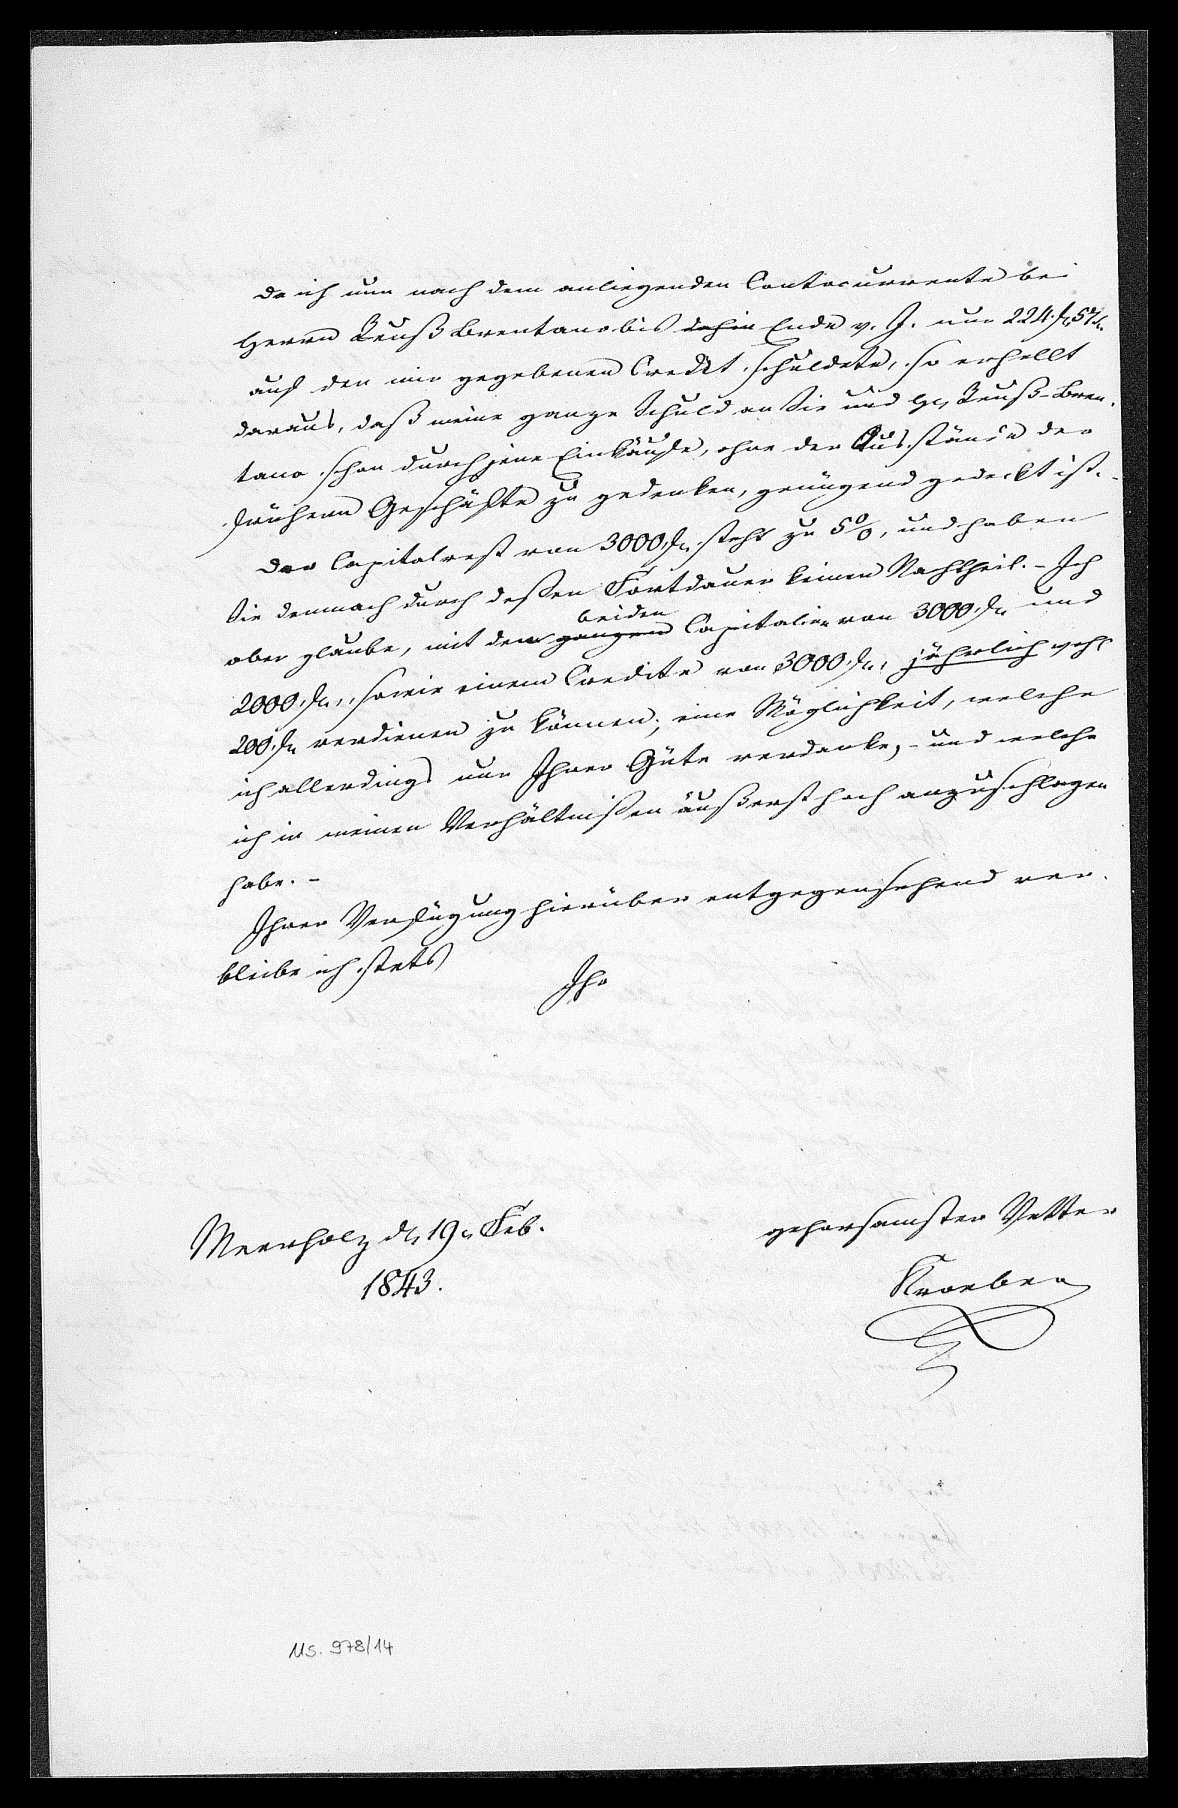 da ich nun nach dem anliegenden Contocurrente bei
Herrn Reuß Brentano bis dahin Ende v. J. nur 224 f. 57
auf den mir gegebenen Credit schuldete, so erhellt
daraus, daß meine ganze Schuld an Sie und H. Reuß-Bren-
tano schon durch jene Einkäufe, ohne der Ausstände der
frühern Geschäfte zu gedenken, genügend gedeckt ist. -
Der Capitalrest von 3000 f. steht zu 5%, und haben
Sie demnach durch deßen Fortdauer keinen Nachtheil. - Ich
beiden
aber glaube, mit dem ganzen Capitalien von 3000 f. und
2000 f., sowie einem Credite von 3000 f., jährlich wohl
200 f. verdienen zu können; eine Möglichkeit, welche
ich allerdings nur Ihrer Güte verdanke, - und welche
ich in meinen Verhältnißen äußerst hoch anzuschlagen
habe. -
Ihrer Verfügung hierüber entgegensehend ver-
bleibe ich stets
Ihr
gehorsamster Vetter
Meerholz d. 19. Feb.
1843.
Kroeber
Ms. 978/14